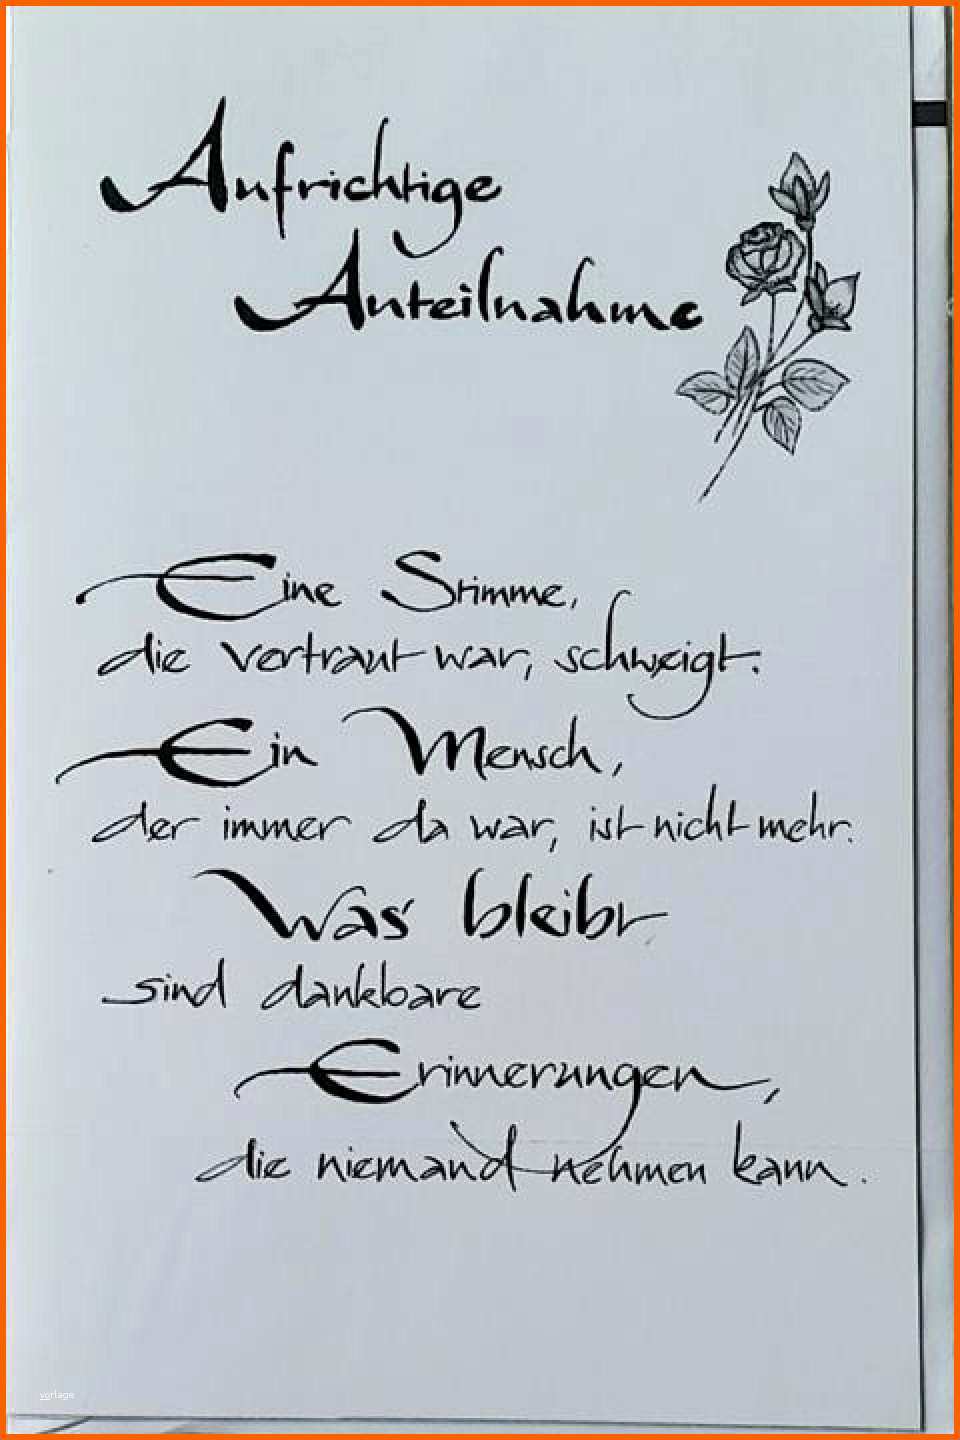 Aufrichtige
Anteilnahme
Eine Stimme,
die vertraut war, schweigt.
Ein Mensch,
der immer da war, ist nicht mehr.
Was bleibt
sind dankbare
Erinnerungen,
die niemand nehmen kann.
vorlage